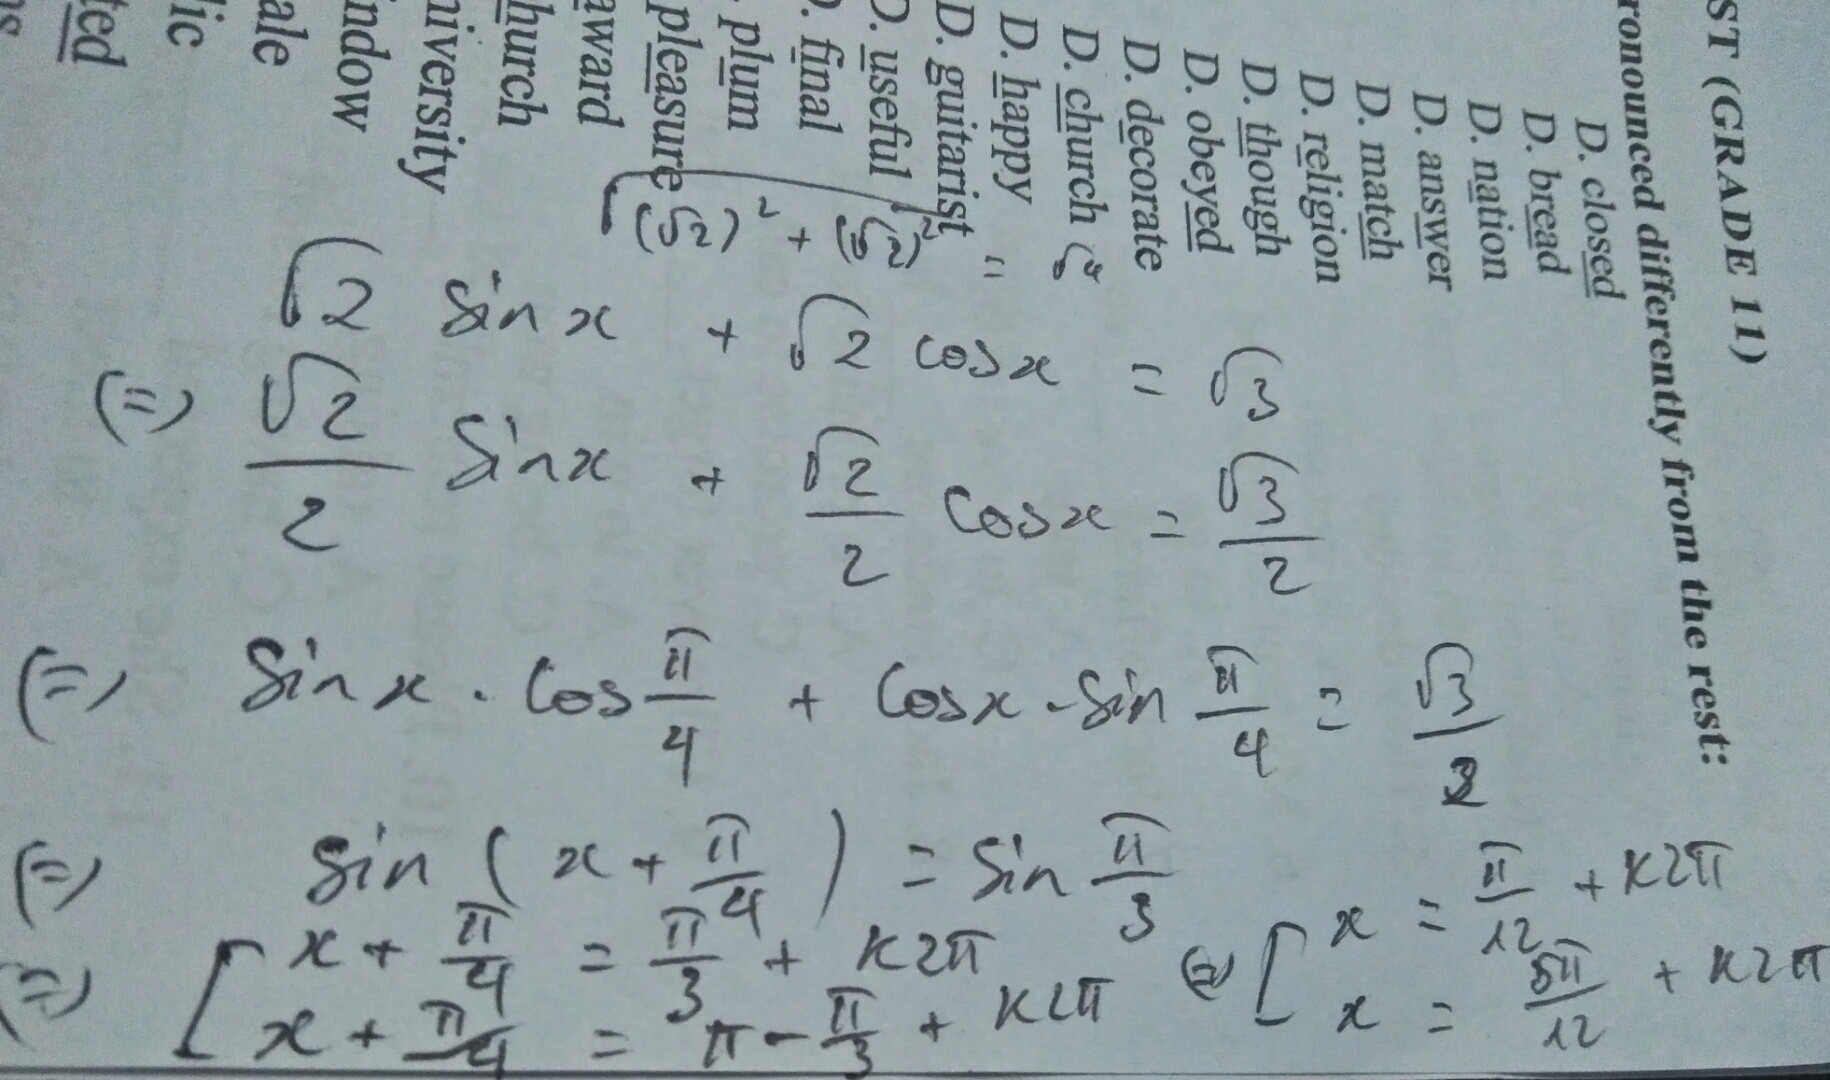 ST (GRADE 11)
ronounced differently from the rest:
D. closed
D. bread
D. nation
D. answer
D. match
D. religion
D. though
D. obeyed
D. decorate
D. church
D. happy
D. guitarist
D. useful
D. final
plum
pleasure
award
hurch
niversity
indow
ale
lic
ted
√((√2)² + (√2)²) = √4
√2 sin x + √2 cos x = √3
(=) √2/2 sin x + √2/2 cos x = √3/2
(=) sin x . cos π/4 + cos x . sin π/4 = √3/2
(=) sin (x + π/4) = sin π/3
(=) [ x + π/4 = π/3 + k2π
x + π/4 = π - π/3 + k2π
(=) [ x = π/12 + k2π
x = 5π/12 + k2π